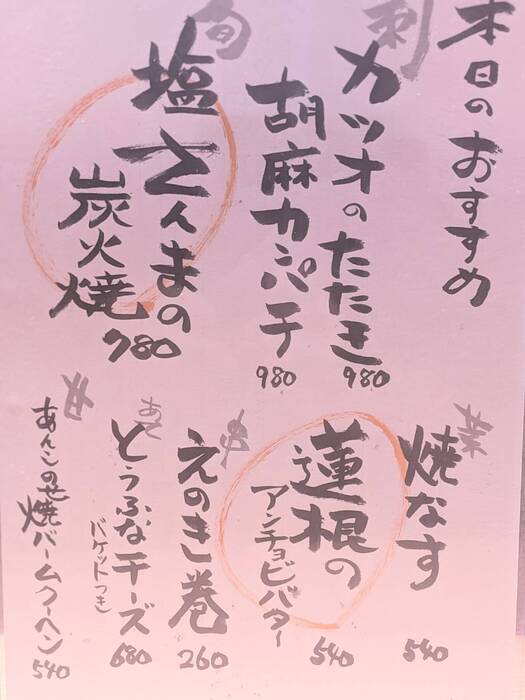 本日のおすすめ
刺
カツオのたたき
980
胡麻カンパチ
980
旬
塩さんまの
炭火焼
780
菜
焼なす
540
蓮根の
アンチョビバター
540
串
えのき巻
260
あて
とうふなチーズ
バケットつき
680
甘
あんこのせ焼バームクーヘン
540